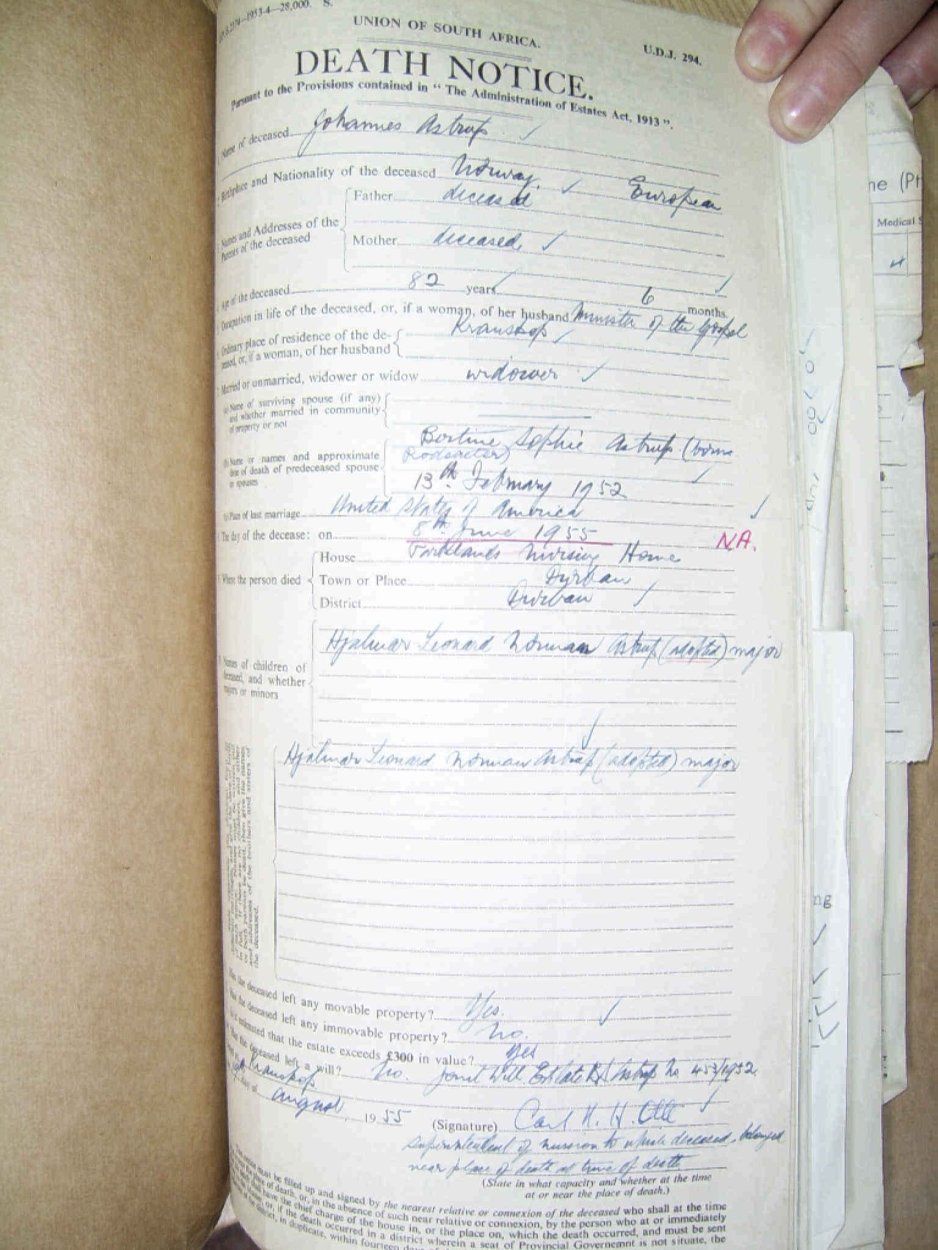 1953-4—28,000. S.
UNION OF SOUTH AFRICA.
U.D.J. 294.
DEATH NOTICE.
Pursuant to the Provisions contained in " The Administration of Estates Act, 1913 ".
Name of deceased Johannes Astrup
Birthplace and Nationality of the deceased Norway. European
Names and Addresses of the Parents of the deceased
Father deceased
Mother deceased
Age of the deceased 82 years 6 months.
Occupation in life of the deceased, or, if a woman, of her husband Minister of the Gospel
Ordinary place of residence of the de-
ceased, or, if a woman, of her husband
Kranskop
Married or unmarried, widower or widow widower
(a) Name of surviving spouse (if any)
and whether married in community
of property or not
(b) Name or names and approximate
date of death of predeceased spouse
or spouses
Bertine Sophie Astrup (born
13th February 1952
(c) Place of last marriage United States of America
The day of the decease: on 8th June 1955
N.A.
Where the person died
House Parklands Nursing Home
Town or Place Durban
District Durban
Names of children of
deceased, and whether
majors or minors
Hjalmar Leonard Norman Astrup (adopted) major
Hjalmar Leonard Norman Astrup (adopted) major
and addresses of the brothers and sisters of
the deceased.
Has the deceased left any movable property? Yes.
Has the deceased left any immovable property? No.
Is it estimated that the estate exceeds £300 in value? Yes
Has the deceased left a will? No. Joint Will Estate Astrup No 453/1952
Kranskop
day of August 1955
(Signature) Carl H. H. Otte
Superintendent of mission to which deceased belonged
near place of death at time of death
(State in what capacity and whether at the time
at or near the place of death.)
must be filled up and signed by the nearest relative or connexion of the deceased who shall at the time
place of death, or, in the absence of such near relative or connexion, by the person who at or immediately
have the chief charge of the house in, or the place on, which the death occurred, and must be sent
or, if the death occurred in a district wherein a seat of Provincial Governemnt is not situate, the
district, in duplicate, within fourteen
ne (Pr
Medical